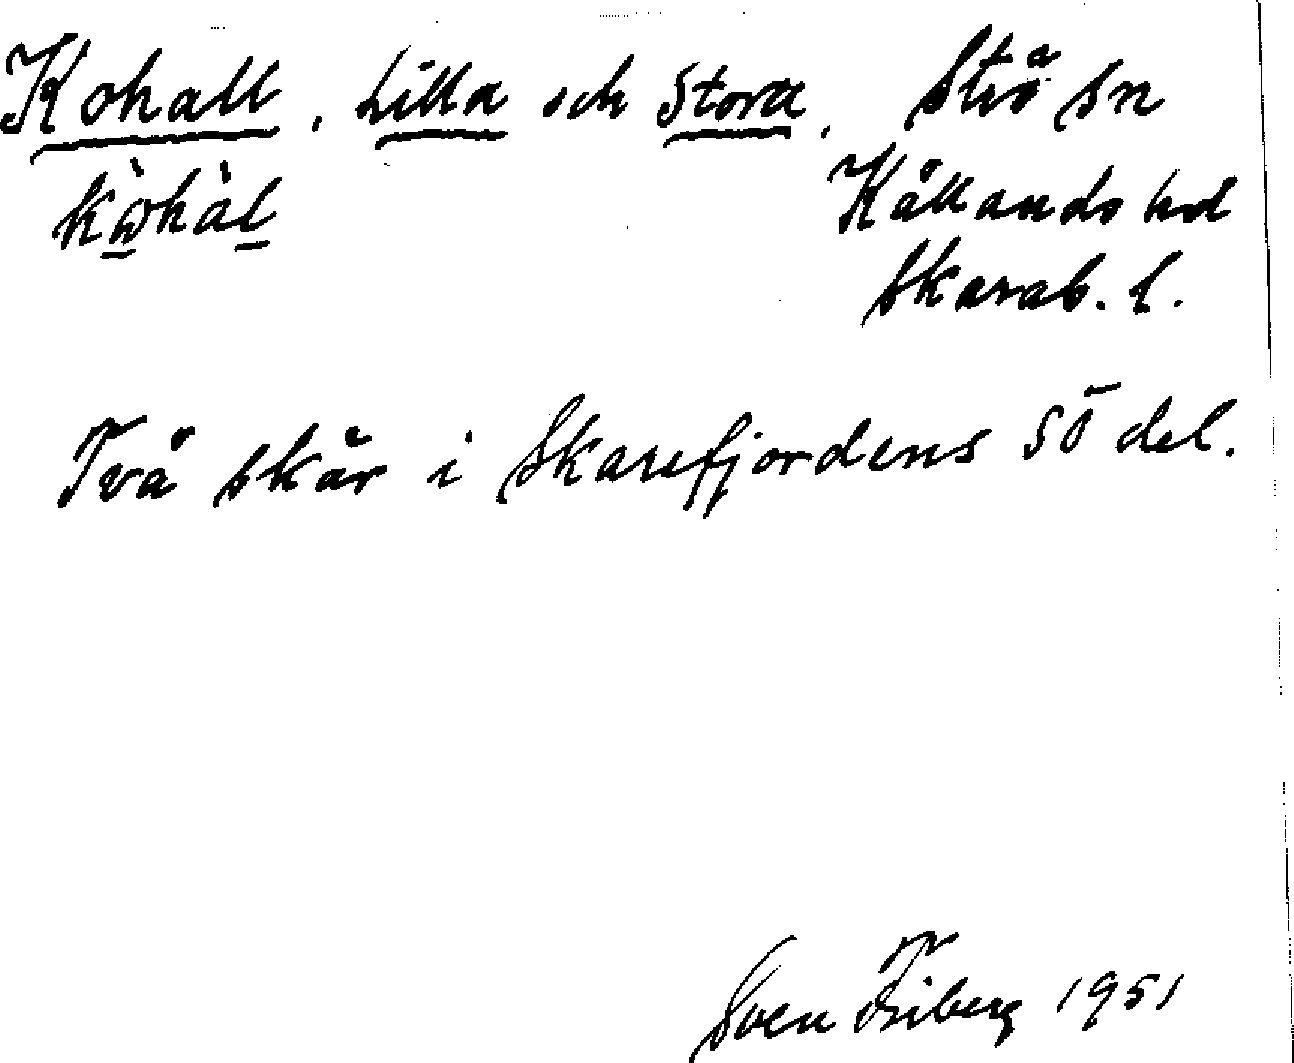 Kohall, Lilla och Stora, Strö sn
kὼhàl Kållands hd
Skarab. l.
Två skär i Skarefjordens SÖ del.
Sven Friberg 1951